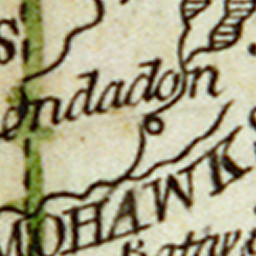 S
ondadon
MOHAWK